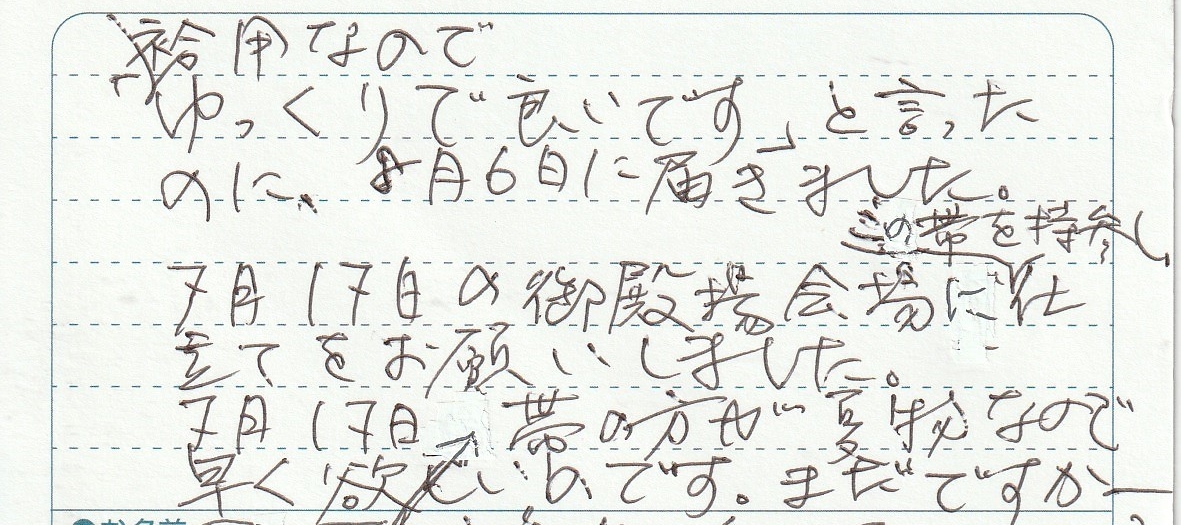 袷用なので
「ゆっくりで良いです」と言った
のに、8月6日に届きました。
の帯を持参し
7月17日の御殿場会場に仕
立てをお願いしました。
7月17日 帯の方が夏物なので
早く欲しいのです。まだですか
お名前